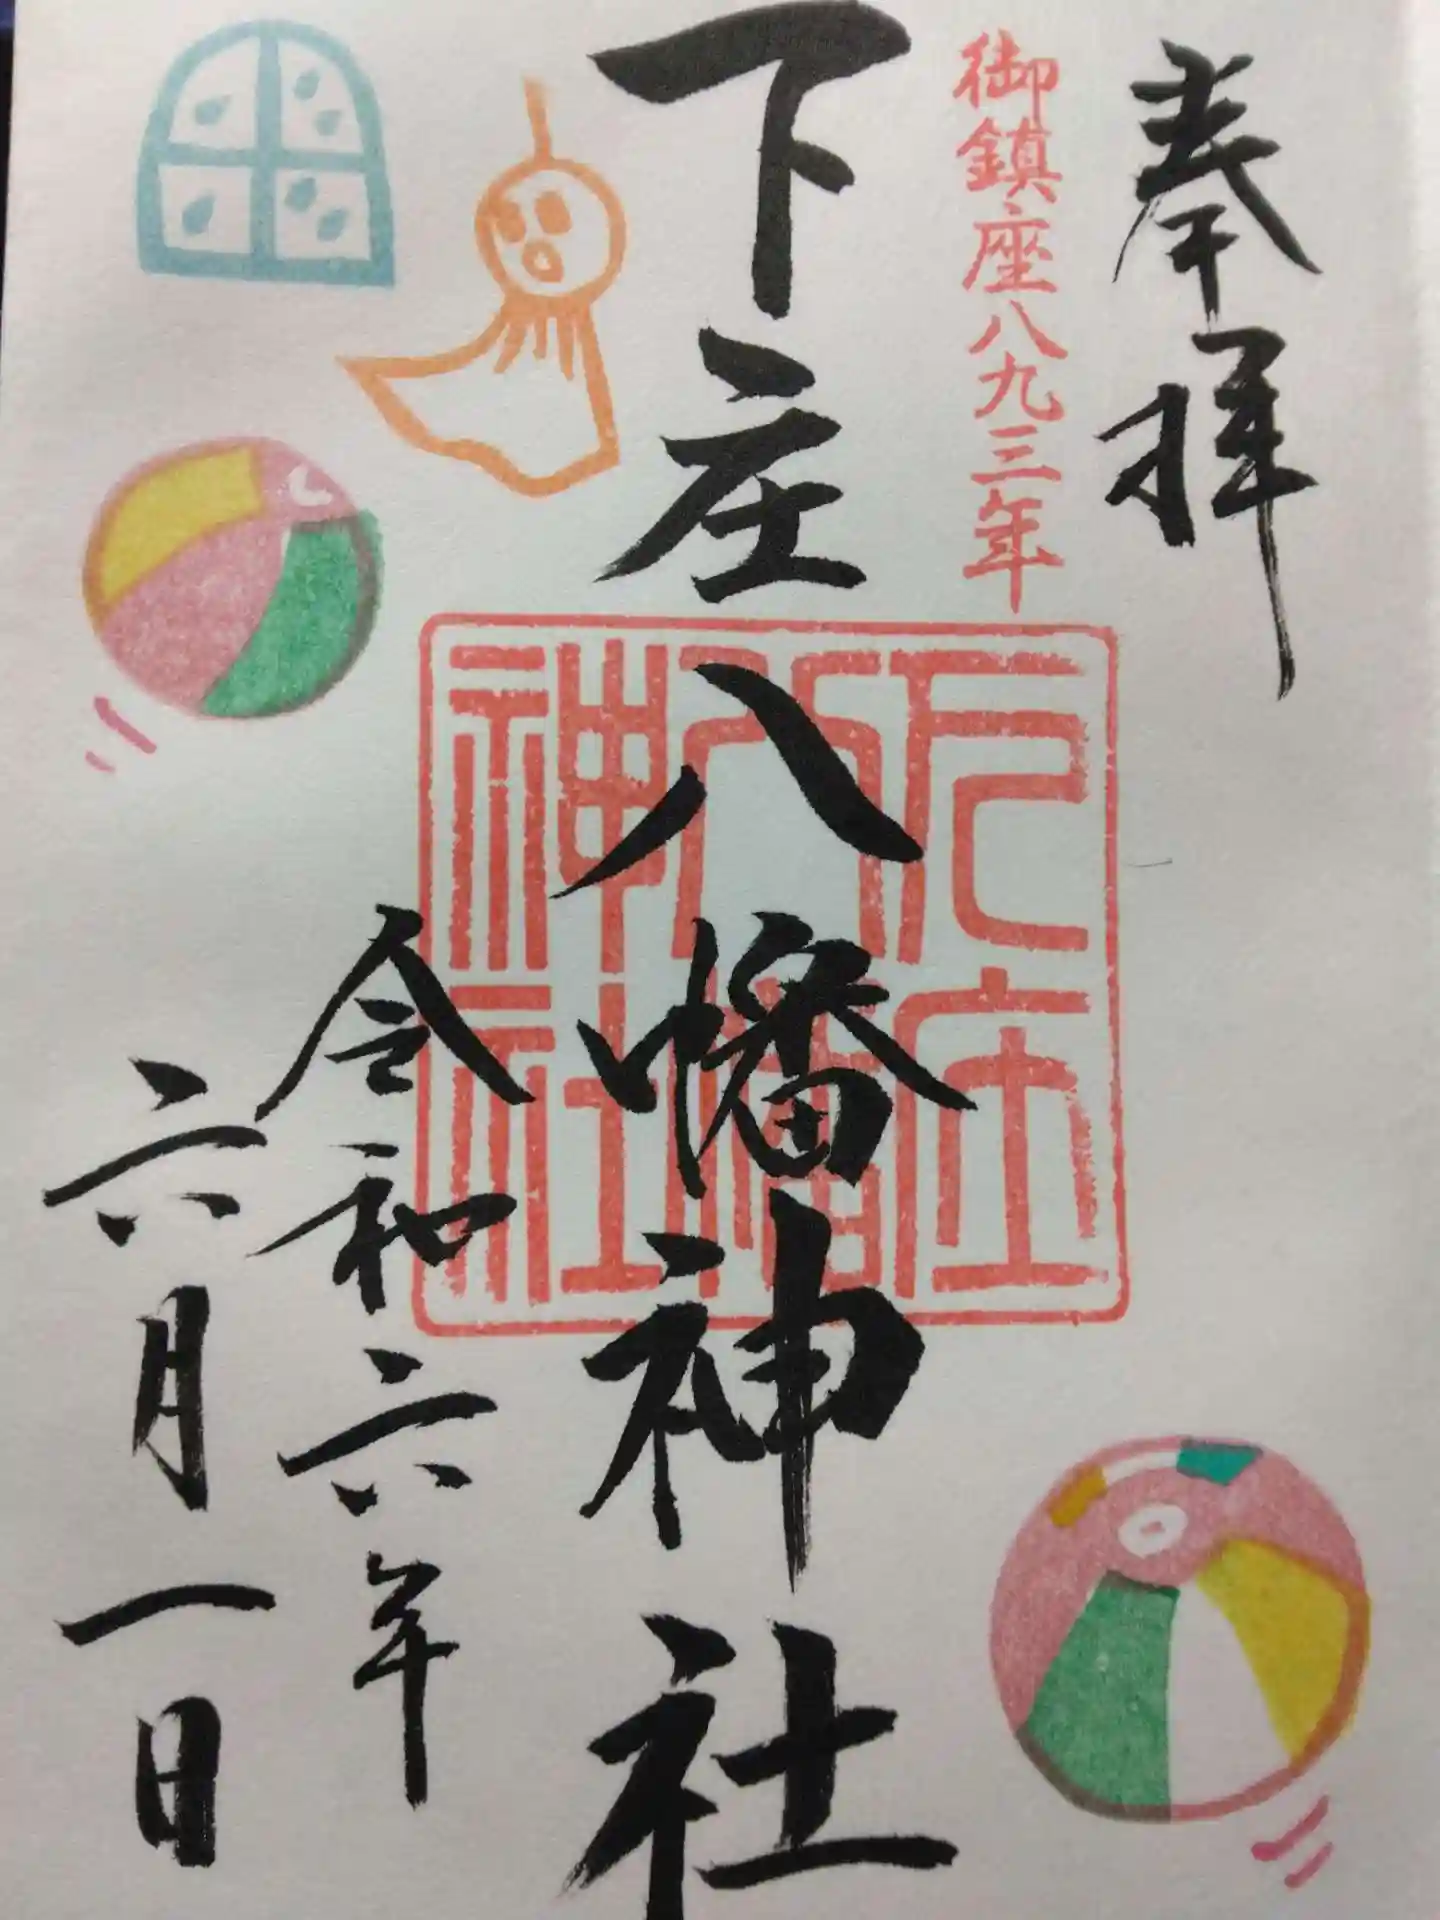 奉拝
御鎮座八九三年
下庄八幡神社
下庄
八幡
神社
令和六年
六月一日